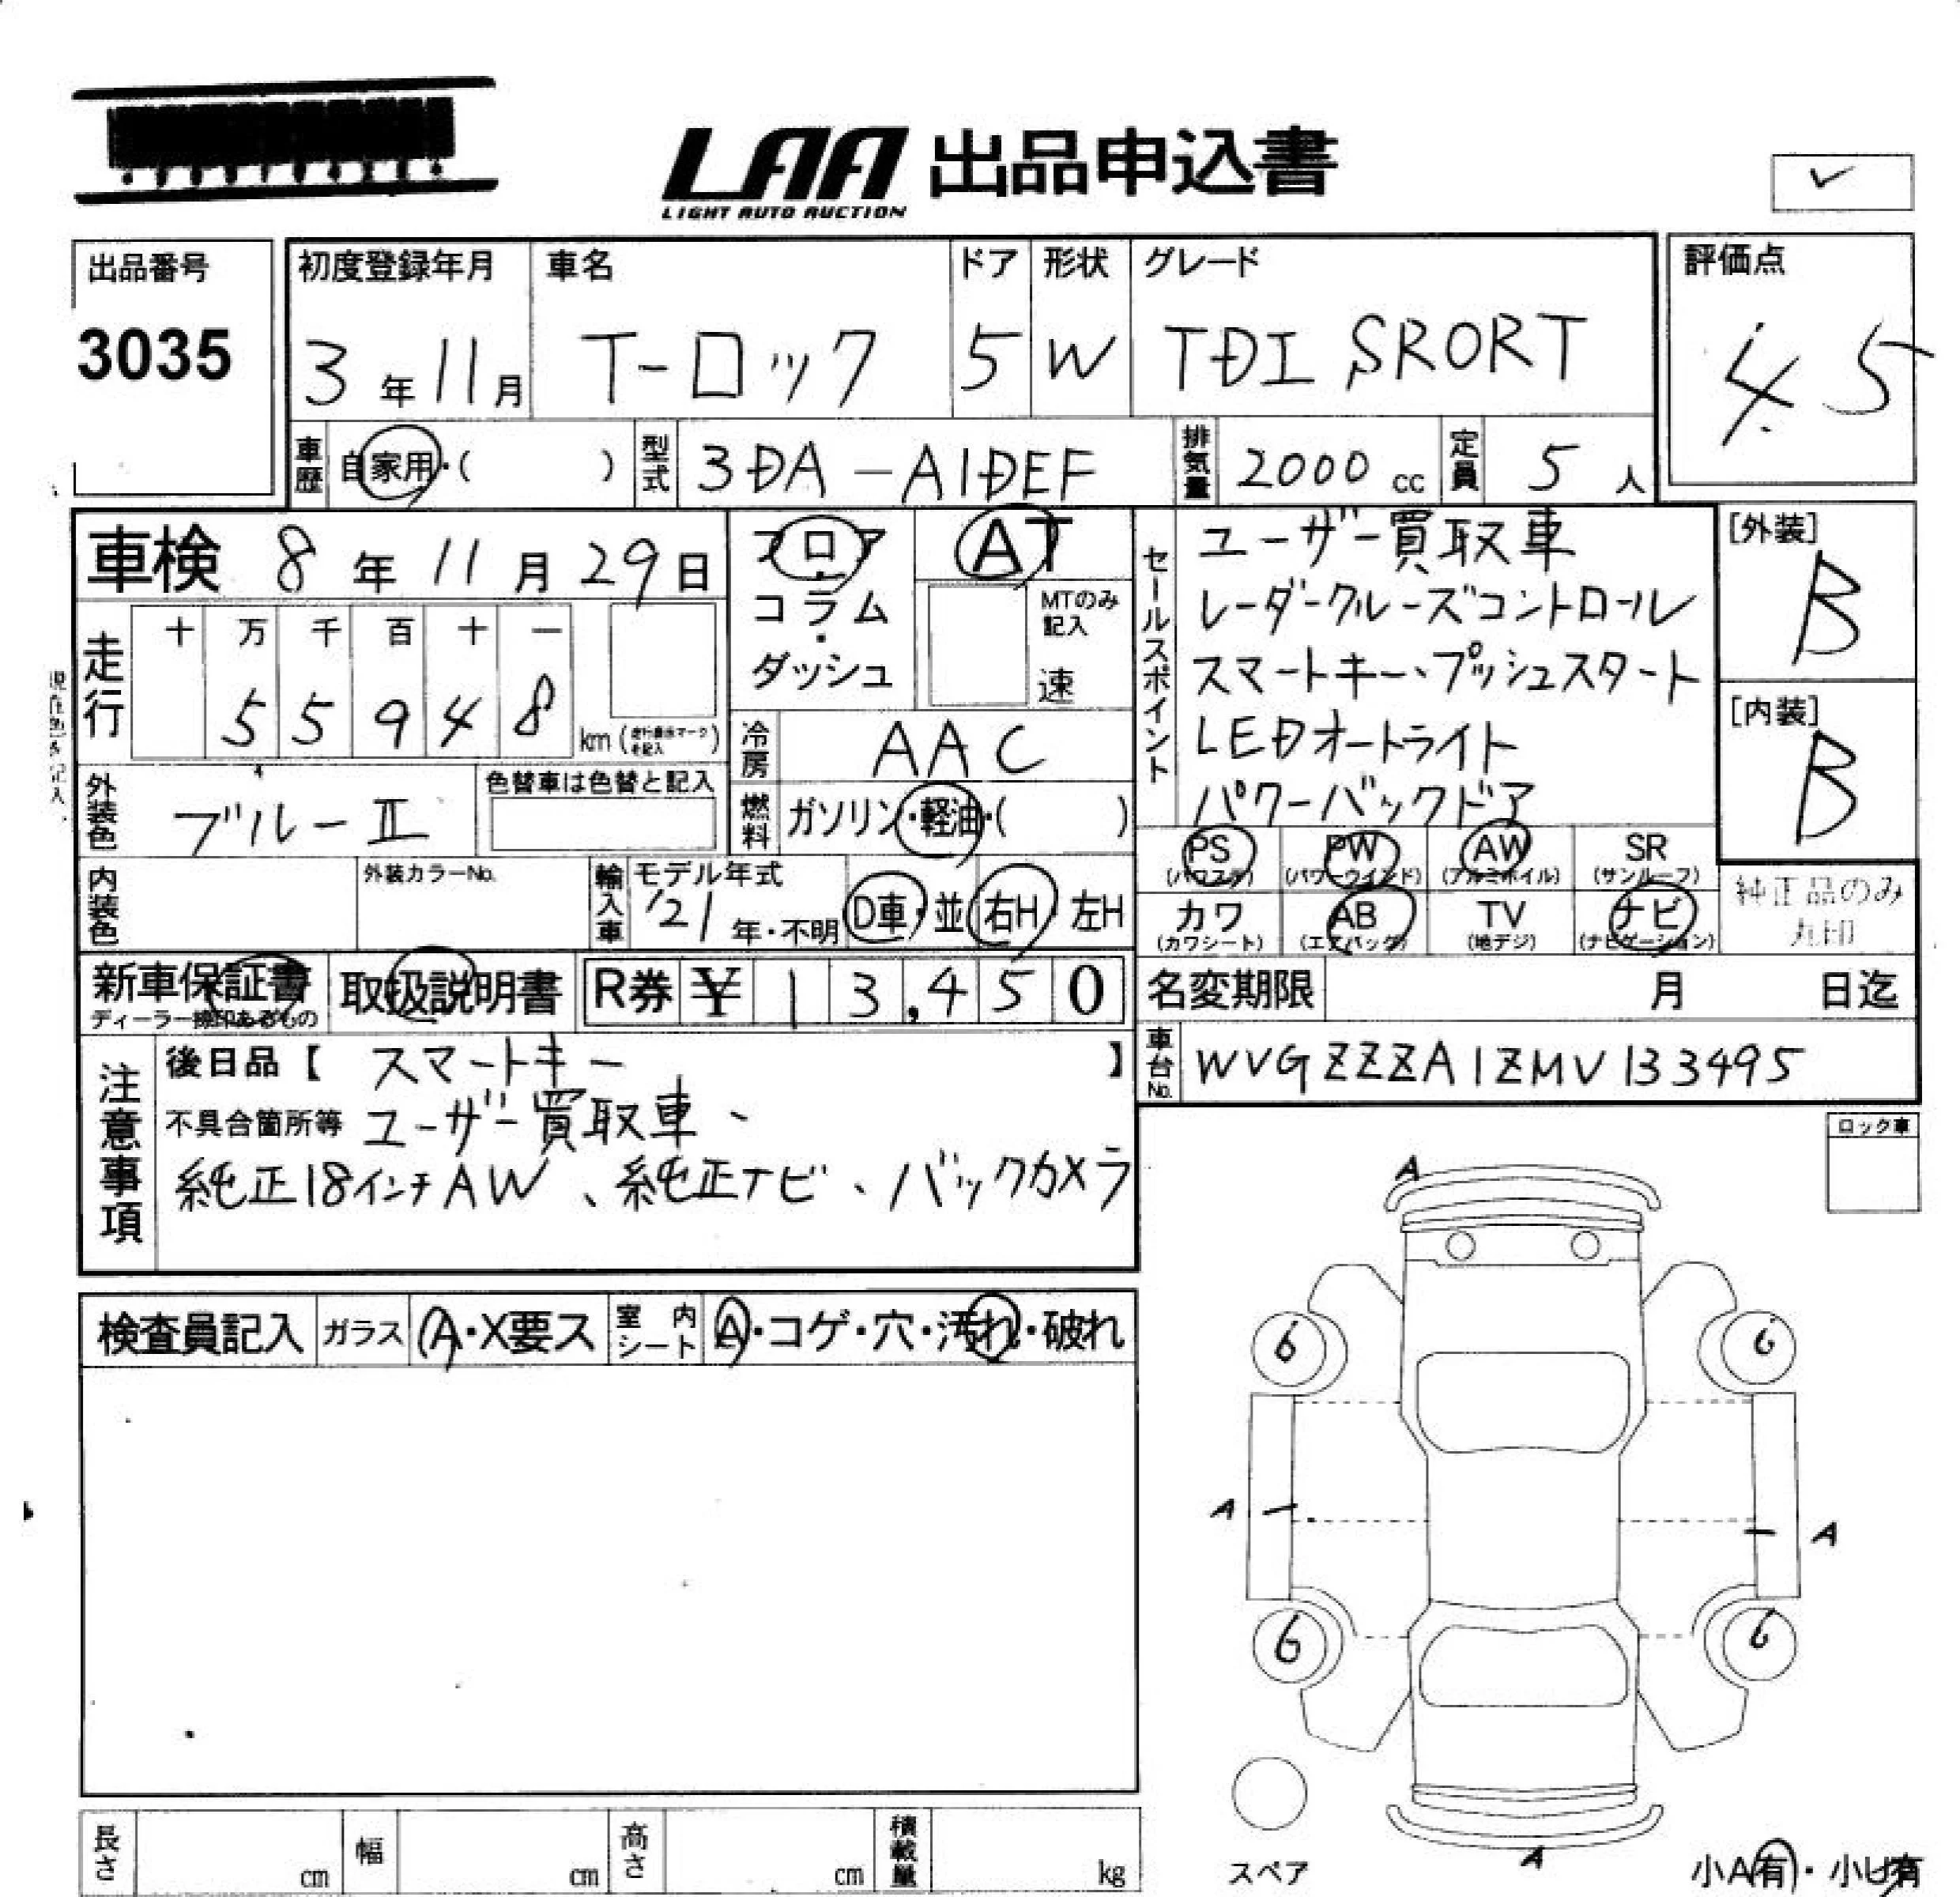 LAA 出品申込書
LIGHT AUTO AUCTION
✓
出品番号
3035
初度登録年月
3年11月
車名
T-ロック
ドア
5
形状
W
グレード
TDI SRORT
評価点
4.5
車歴
自家用・( )
型式
3DA-A1DEF
排気量
2000 cc
定員
5 人
車検 8年11月29日
走行
十 万 千 百 十 一
5 5 9 4 8
km (走行表示マークを記入)
外装色
ブルーⅡ
色替車は色替と記入
内装色
外装カラーNo.
フロア・コラム・ダッシュ
AT
MTのみ記入
速
冷房
AAC
燃料
ガソリン・軽油・( )
輸入車
モデル年式
'21年・不明
D車・並
右H・左H
セールスポイント
ユーザー買取車
レーダークルーズコントロール
スマートキー、プッシュスタート
LEDオートライト
パワーバックドア
[外装]
B
[内装]
B
PS
(パワステ)
PW
(パワーウインド)
AW
(アルミホイル)
SR
(サンルーフ)
カワ
(カワシート)
AB
(エアバック)
TV
(地デジ)
ナビ
(ナビゲーション)
純正品のみ
丸印
新車保証書
ディーラー捺印あるもの
取扱説明書
R券 ¥ 13,450
名変期限 月 日迄
車台No.
WVGZZZA1ZMV133495
注意事項
後日品【 スマートキー 】
不具合箇所等 ユーザー買取車、
純正18インチAW、純正ナビ、バックカメラ
ロック車
検査員記入
ガラス
A・X要ス
室内シート
A・コゲ・穴・汚れ・破れ
A
6 6
A A
6 6
A
スペア
小A有・小U有
長さ cm
幅 cm
高さ cm
積載量 kg